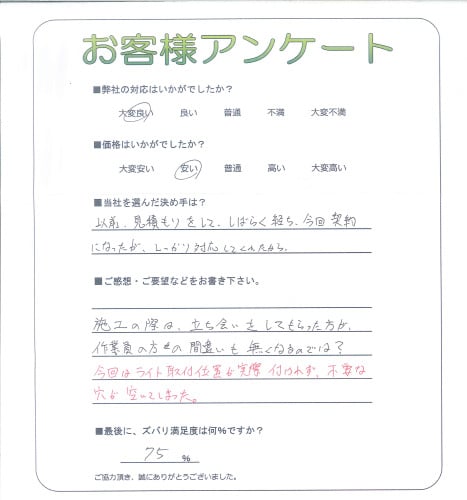 お客様アンケート
■弊社の対応はいかがでしたか？
大変良い 良い 普通 不満 大変不満
■価格はいかがでしたか？
大変安い 安い 普通 高い 大変高い
■当社を選んだ決め手は？
以前、見積もりをして、しばらく経ち、今回契約
になったが、しっかり対応してくれたから。
■ご感想・ご要望などをお書き下さい。
施工の際は、立ち会いをしてもらった方が、
作業員の方々の間違いも無くなるのでは？
今回はライト取付位置が実際付けれず、不要な
穴が空いてしまった。
■最後に、ズバリ満足度は何％ですか？
75 ％
ご協力頂き、誠にありがとうございました。